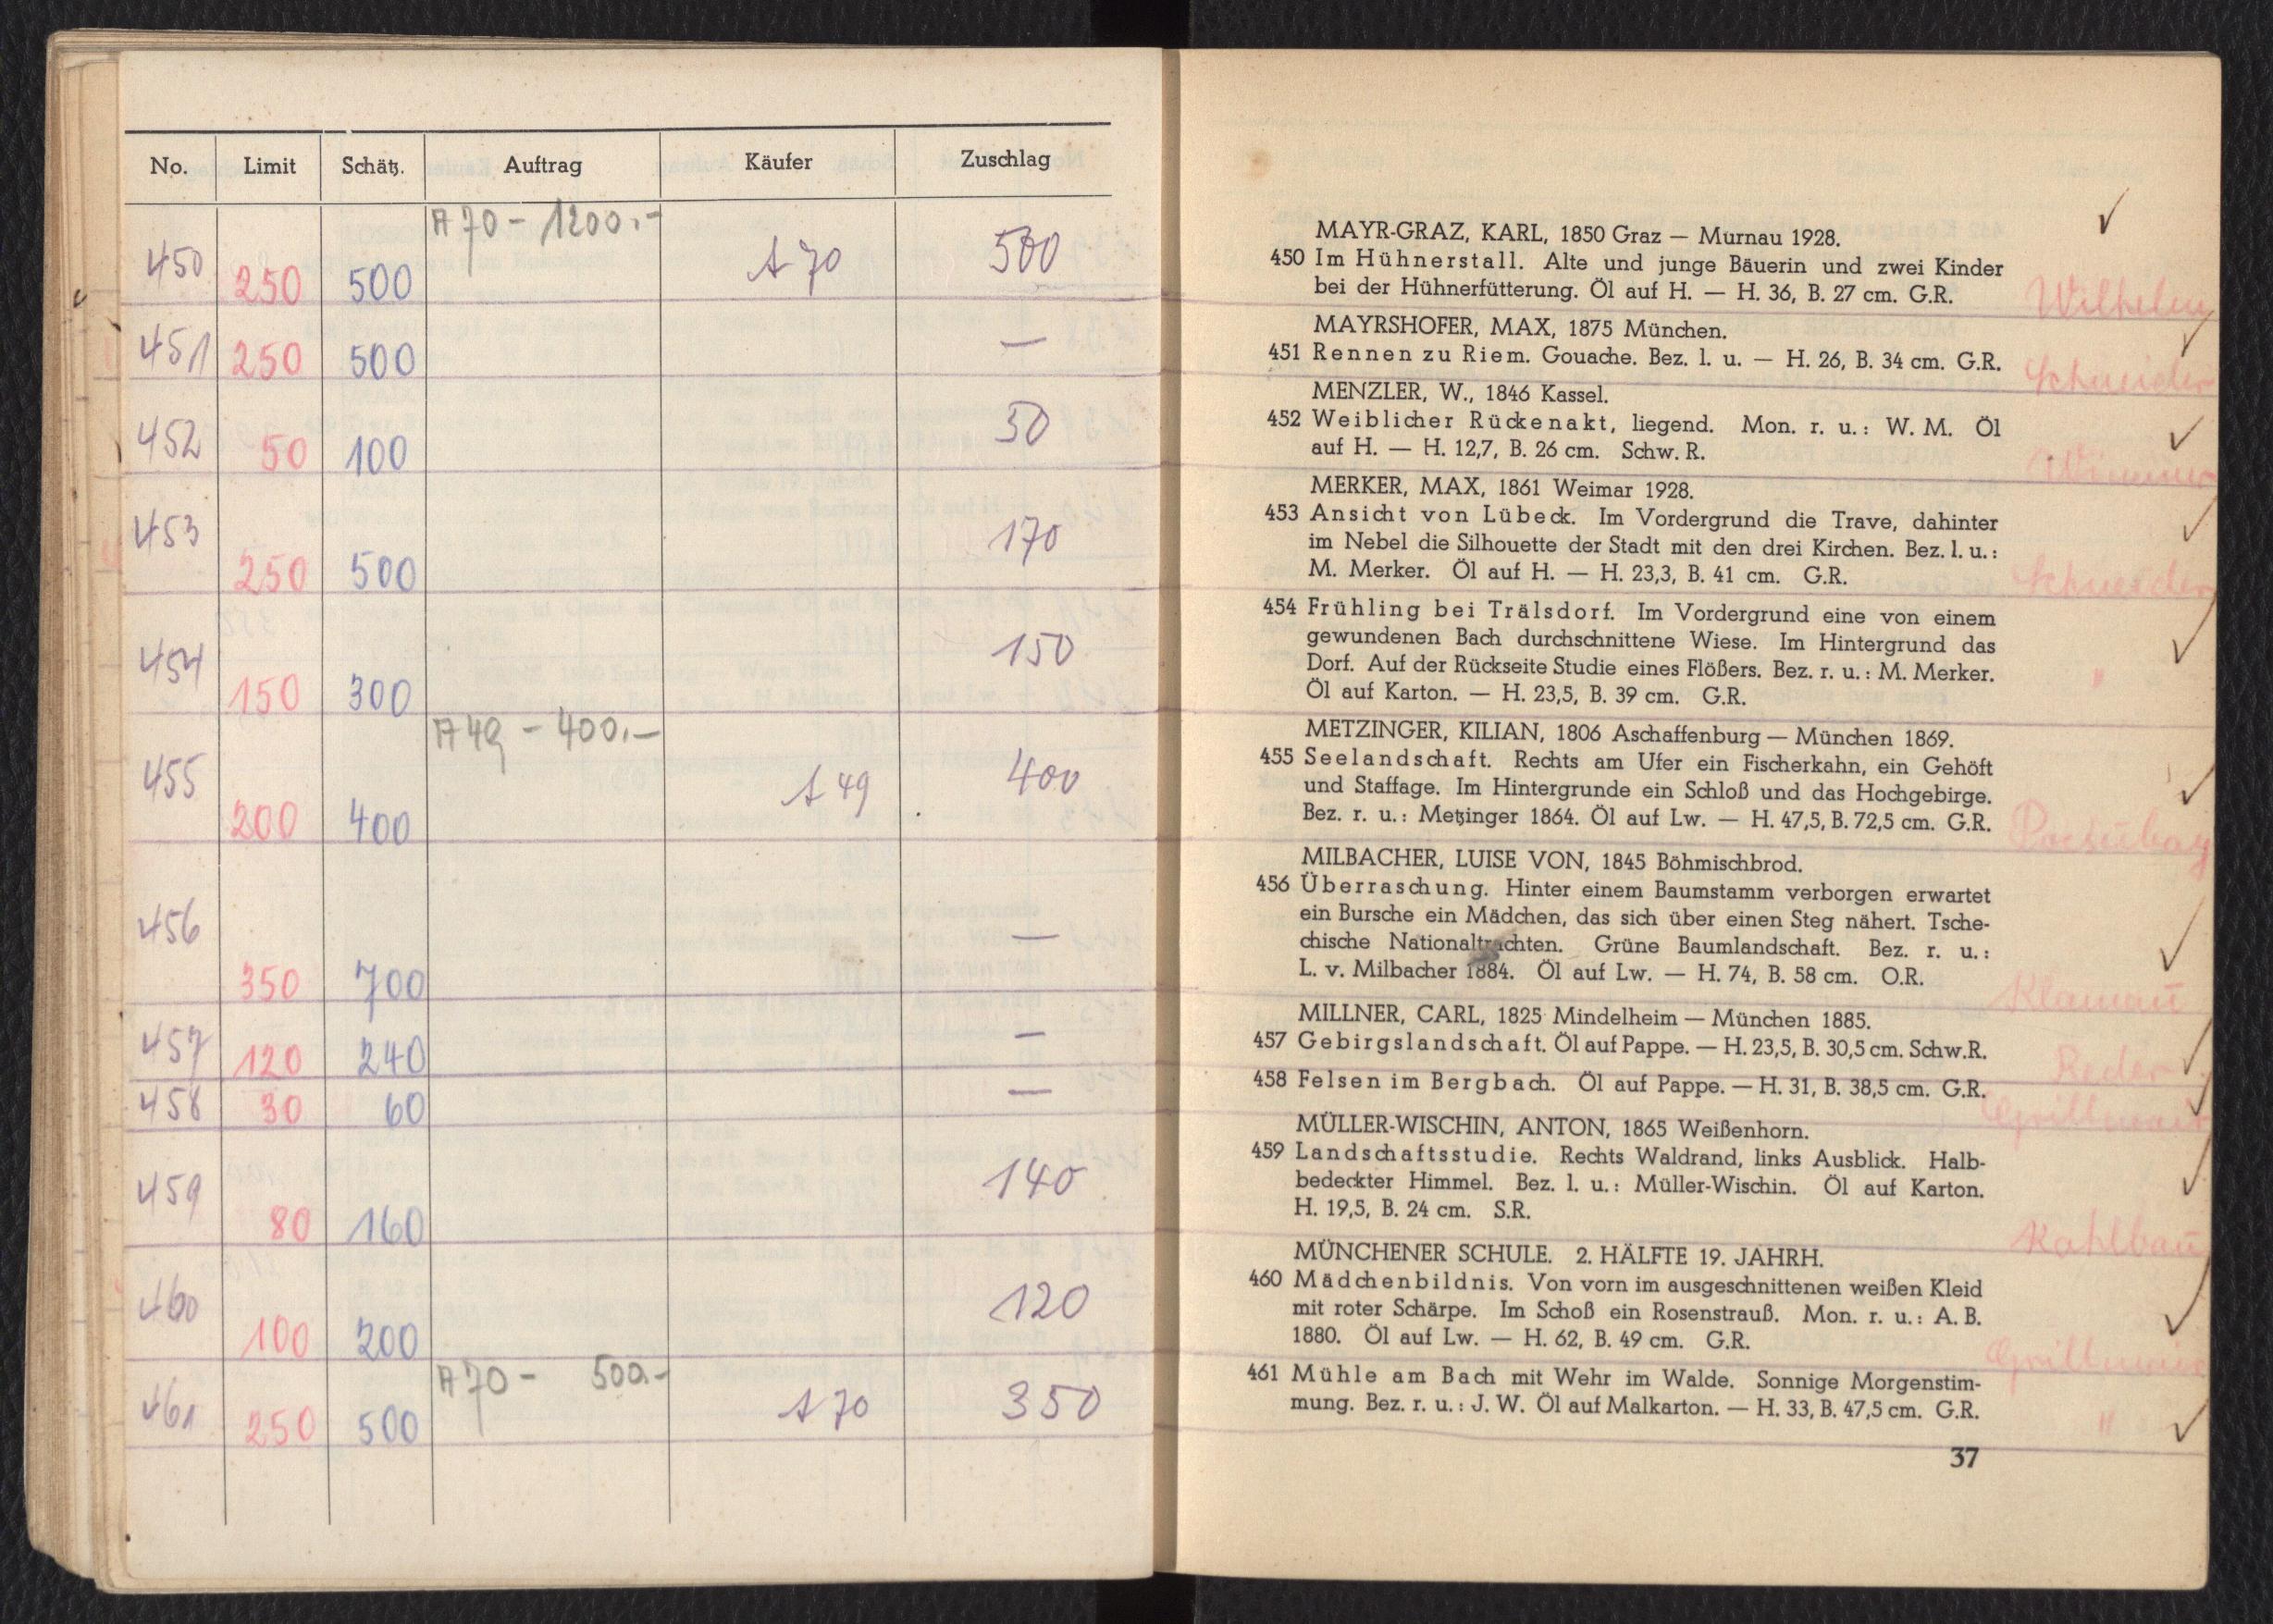 No. Limit Schätz. Auftrag Käufer Zuschlag
450 250 500 A 70 - 1200.- A 70 500
451 250 500 —
452 50 100 50
453 250 500 170
454 150 300 150
455 200 400 A 49 - 400.- A 49 400
456 350 700 —
457 120 240 —
458 30 60 —
459 80 160 140
460 100 200 120
461 250 500 A 70 - 500.- A 70 350
MAYR-GRAZ, KARL, 1850 Graz — Murnau 1928. ✓
450 Im Hühnerstall. Alte und junge Bäuerin und zwei Kinder
bei der Hühnerfütterung. Öl auf H. — H. 36, B. 27 cm. G.R. Wilhelm
MAYRSHOFER, MAX, 1875 München. ✓
451 Rennen zu Riem. Gouache. Bez. l. u. — H. 26, B. 34 cm. G.R. Schneider
MENZLER, W., 1846 Kassel.
452 Weiblicher Rückenakt, liegend. Mon. r. u.: W. M. Öl ✓
auf H. — H. 12,7, B. 26 cm. Schw. R.
MERKER, MAX, 1861 Weimar 1928.
453 Ansicht von Lübeck. Im Vordergrund die Trave, dahinter ✓
im Nebel die Silhouette der Stadt mit den drei Kirchen. Bez. l. u.:
M. Merker. Öl auf H. — H. 23,3, B. 41 cm. G.R. Schneider
454 Frühling bei Trälsdorf. Im Vordergrund eine von einem
gewundenen Bach durchschnittene Wiese. Im Hintergrund das ✓
Dorf. Auf der Rückseite Studie eines Flößers. Bez. r. u.: M. Merker. "
Öl auf Karton. — H. 23,5, B. 39 cm. G.R.
METZINGER, KILIAN, 1806 Aschaffenburg — München 1869.
455 Seelandschaft. Rechts am Ufer ein Fischerkahn, ein Gehöft ✓
und Staffage. Im Hintergrunde ein Schloß und das Hochgebirge.
Bez. r. u.: Metzinger 1864. Öl auf Lw. — H. 47,5, B. 72,5 cm. G.R.
MILBACHER, LUISE VON, 1845 Böhmischbrod.
456 Überraschung. Hinter einem Baumstamm verborgen erwartet
ein Bursche ein Mädchen, das sich über einen Steg nähert. Tsche-
chische Nationaltrachten. Grüne Baumlandschaft. Bez. r. u.: ✓
L. v. Milbacher 1884. Öl auf Lw. — H. 74, B. 58 cm. O.R. Klamaū
MILLNER, CARL, 1825 Mindelheim — München 1885.
457 Gebirgslandschaft. Öl auf Pappe. — H. 23,5, B. 30,5 cm. Schw.R. Reder ✓
458 Felsen im Bergbach. Öl auf Pappe. — H. 31, B. 38,5 cm. G.R. ✓
MÜLLER-WISCHIN, ANTON, 1865 Weißenhorn.
459 Landschaftsstudie. Rechts Waldrand, links Ausblick. Halb-
bedeckter Himmel. Bez. l. u.: Müller-Wischin. Öl auf Karton. ✓
H. 19,5, B. 24 cm. S.R. Kahlbaū
MÜNCHENER SCHULE. 2. HÄLFTE 19. JAHRH.
460 Mädchenbildnis. Von vorn im ausgeschnittenen weißen Kleid
mit roter Schärpe. Im Schoß ein Rosenstrauß. Mon. r. u.: A. B. ✓
1880. Öl auf Lw. — H. 62, B. 49 cm. G.R.
461 Mühle am Bach mit Wehr im Walde. Sonnige Morgenstim-
mung. Bez. r. u.: J. W. Öl auf Malkarton. — H. 33, B. 47,5 cm. G.R. " ✓
37